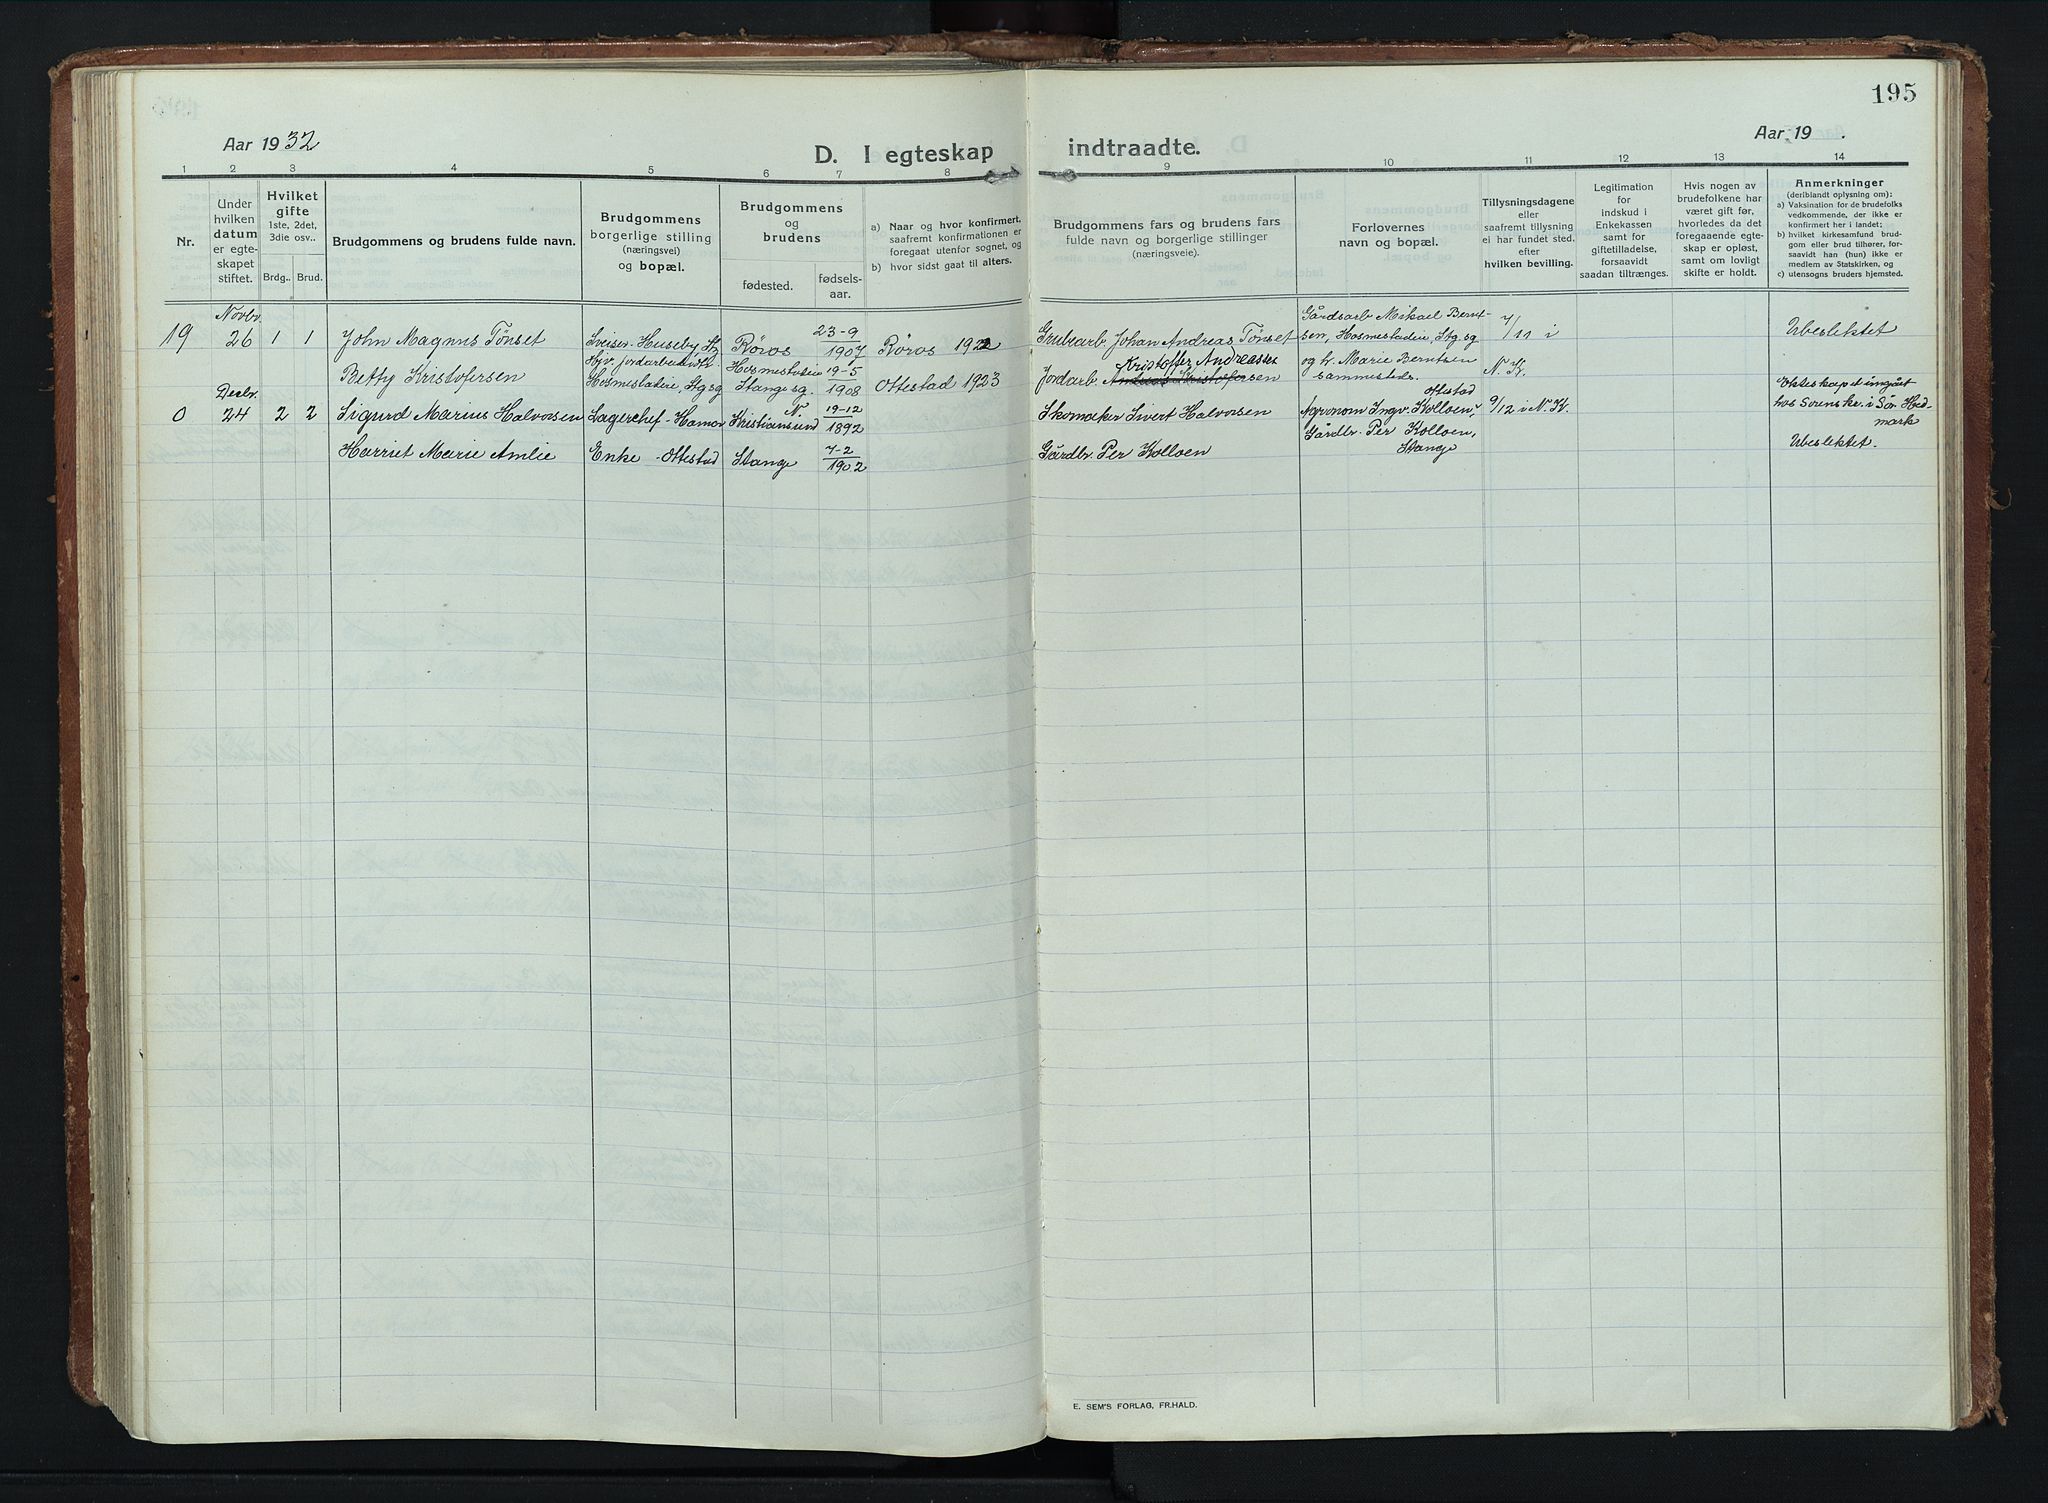 195
Aar 1932
D. I egteskap indtraadte.
Aar 19 .
1 2 3 4 5 6 7 8 9 10 11 12 13 14
Nr.
Under
hvilken
datum
er egte-
skapet
stiftet.
Hvilket
gifte
1ste, 2det,
3die osv..
Brdg.. Brud.
Brudgommens og brudens fulde navn.
Brudgommens
borgerlige stilling
(næringsvei)
og bopæl.
Brudgommens
og
brudens
fødested.
fødsels-
aar.
a) Naar og hvor konfirmert,
saafremt konfirmationen er
foregaat utenfor sognet, og
b) hvor sidst gaat til alters.
Brudgommens fars og brudens fars
fulde navn og borgerlige stillinger
(næringsveie).
Forlovernes
navn og bopæl.
Tillysningsdagene
eller
saafremt tillysning
ei har fundet sted.
efter
hvilken bevilling.
Legitimation
for
indskud i
Enkekassen
samt for
giftetilladelse,
forsaavidt
saadan tiltrænges.
Hvis nogen av
brudefolkene har
været gift før,
hvorledes da det
foregaaende egte-
skap er opløst,
samt om lovligt
skifte er holdt.
Anmerkninger
(deriblandt oplysning om);
a) Vaksination for de brudefolks
vedkommende, der ikke er
konfirmert her i landet;
b) hvilket kirkesamfund brud-
gom eller brud tilhører, for-
saavidt han (hun) ikke er
medlem av Statskirken, og
c) utensogns bruders hjemsted.
Novbr.
19 26 1 1 John Magnus Tønset
Sveiser. Huseby, Stg
Røros
23-9
1907
Røros 1922
Grubearb. Johan Andreas Tønset
Gårdsarb. Mikael Bernt-
sen, Hosmestadeie, Stg sg
7/11 i
N. K.
Ubeslektet
Betty Kristofersen
Hosmestadeie, Stg sg
Hosmestadeie
Stange sg.
19-5
1908
Ottestad 1923
Kristoffer Andreassen
Jordarb. Andreas Kristofersen
og fr. Marie Berntsen
sammesteds.
Decbr.
0 24 2 2 Sigurd Marius Halvorsen
Lagerchef - Hamar
Kristiansund N.
19-12
1892
Skomaker Sivert Halvorsen
Ottestad
Agronom Ingv. Kolloen,
9/12 i N. K.
Ekteskapet inngått
hos Sorenskr. i Sør-Hed-
mark
Harriet Marie Amlie
Enke - Ottestad
Stange
7-2
1902
Gårdbr. Per Kolloen
Gårdbr. Per Kolloen,
Stange
Ubeslektet.
E. SEM'S FORLAG, FR.HALD.